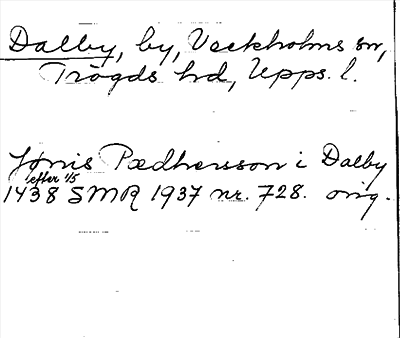 Dalby, by, Veckholms sn,
Trögds hd, Upps. l.
Jønis Pædhersson i Dalby
efter 1/5
1438 SMR 1937 nr. 728. orig.